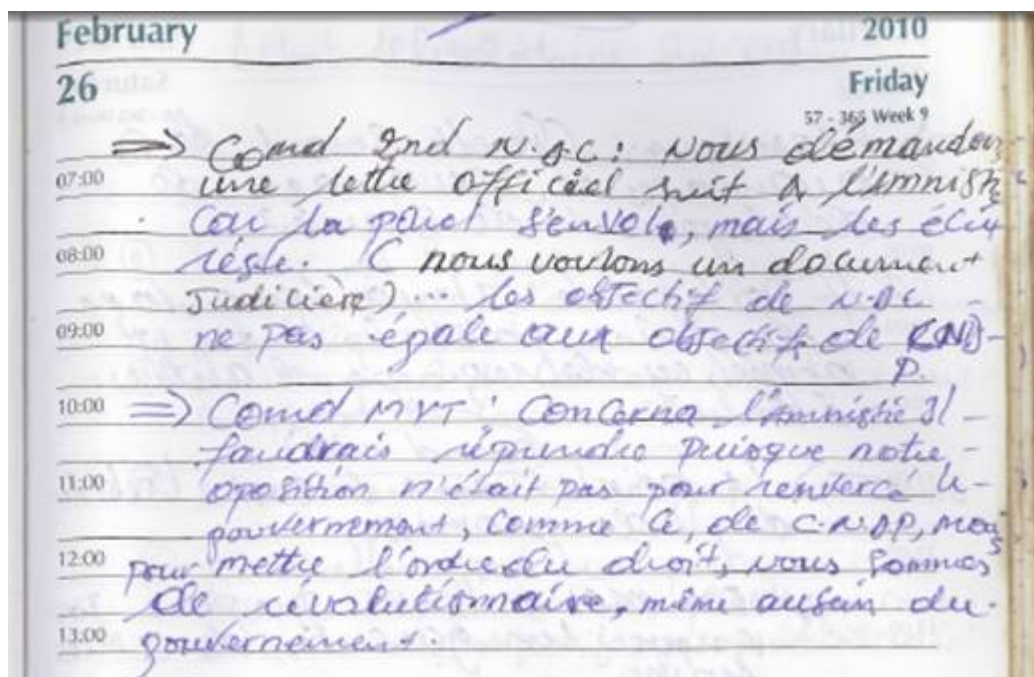 February 2010
26 Friday
57 - 365 Week 9
=> Comd 2nd N.D.C : Nous démandons
07:00 une lettre officiel suit à l'Amnisti
Car la parol s'envole, mais les écrit
08:00 reste. ( nous voulons un document
Judicière) ... les objectif de N.D.C
09:00 ne pas égale aux objectifs de CND-
P.
10:00 => Comd MVT : Concerna l'Amnistie Il
faudrais répondre puisque notre
11:00 oposition n'était pas pour renvercé le
gouvernement, comme Ce, de C.N.D.P, mais
12:00 pour mettre l'ordre du droit, nous sommes
De révolutionnaire, même ausein du
13:00 gouvernement.